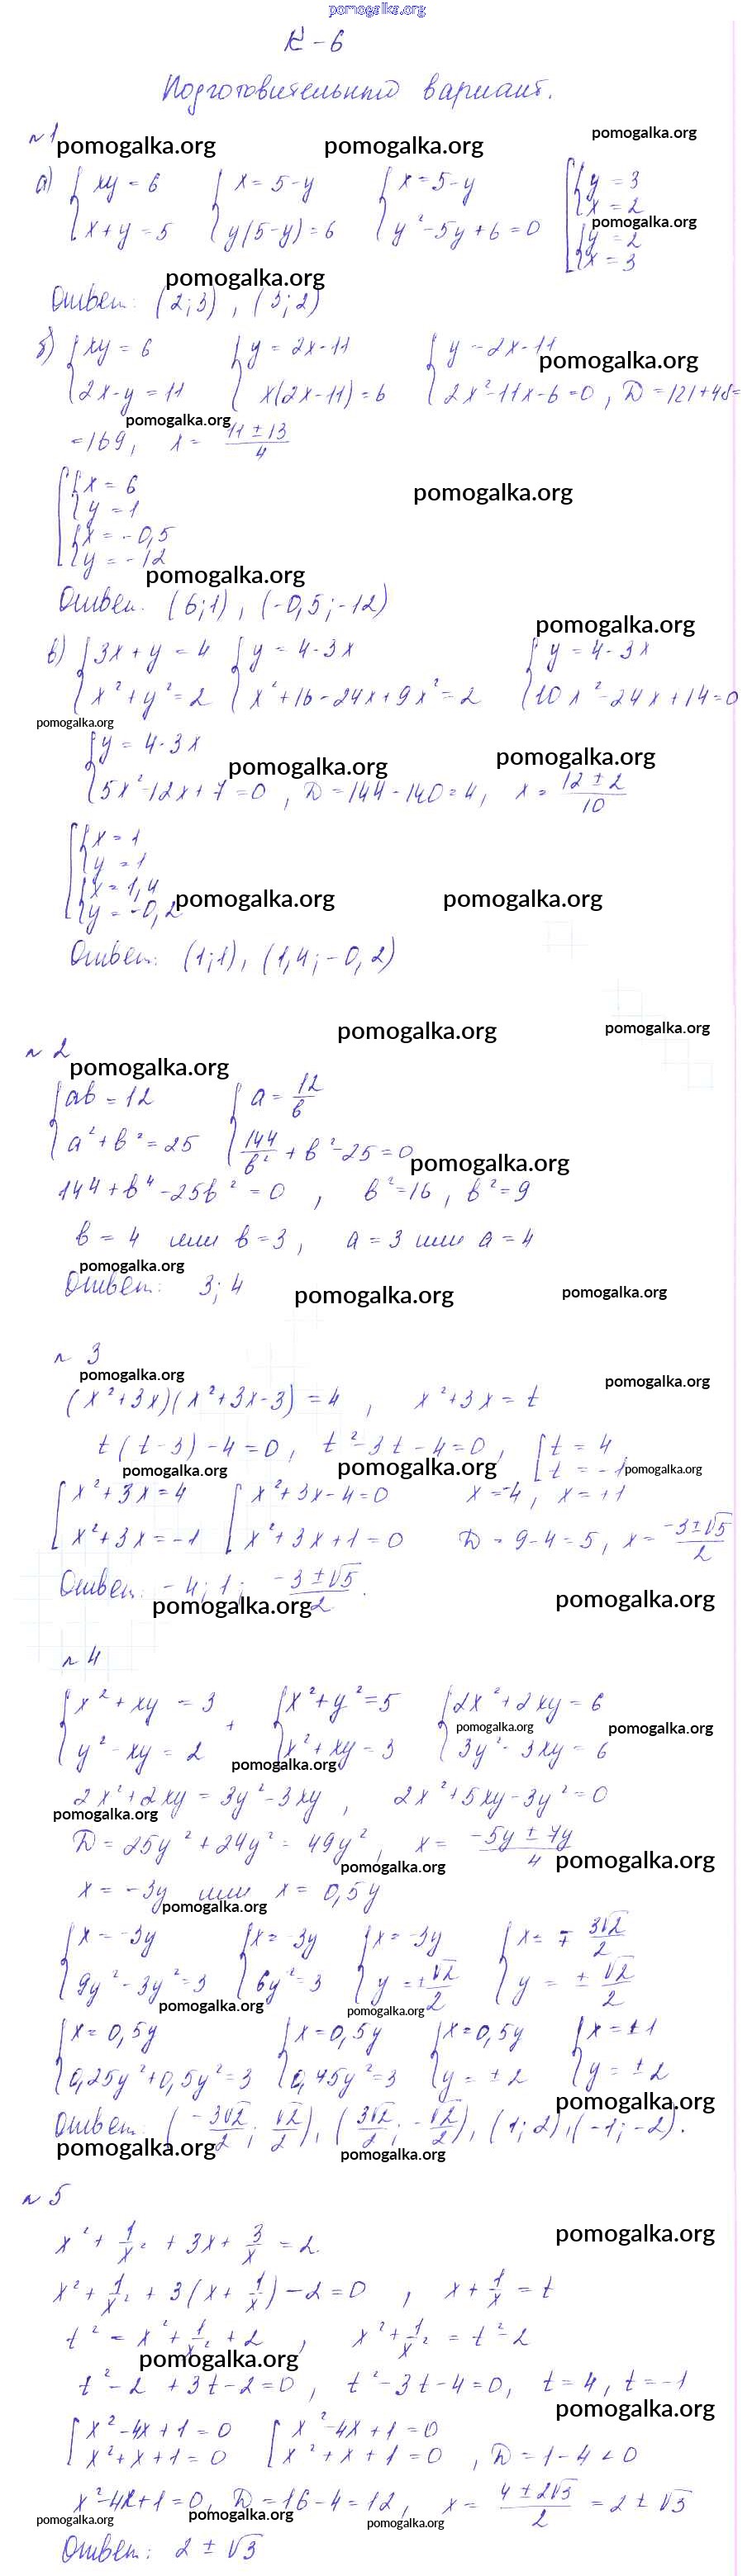 pomogalka.org
К-6
Подготовительный вариант.
№1
pomogalka.org pomogalka.org pomogalka.org
а) { xy = 6 { x = 5-y { x = 5-y [ { y = 3
{ x+y = 5 { y(5-y) = 6 { y²-5y+6=0 { x = 2
pomogalka.org
{ y = 2
{ x = 3
pomogalka.org
Ответ: (2;3), (3;2)
б) { xy = 6 { y = 2x-11 { y = 2x-11
pomogalka.org
{ 2x-y = 11 { x(2x-11) = 6 { 2x²-11x-6=0, D=121+48=
pomogalka.org
=169, x = (11 ± 13)/4
[ { x = 6
{ y = 1
pomogalka.org
{ x = -0,5
{ y = -12
pomogalka.org
Ответ. (6;1), (-0,5;-12)
pomogalka.org
в) { 3x+y = 4 { y = 4-3x { y = 4-3x
{ x²+y²=2 { x²+16-24x+9x²=2 { 10x²-24x+14=0
pomogalka.org
{ y = 4-3x
pomogalka.org pomogalka.org
{ 5x²-12x+7=0, D=144-140=4, x = (12 ± 2)/10
[ { x = 1
{ y = 1
{ x = 1,4
{ y = -0,2
pomogalka.org pomogalka.org
Ответ: (1;1), (1,4;-0,2)
pomogalka.org pomogalka.org
№ 2
pomogalka.org
{ ab = 12 { a = 12/b
{ a²+b²=25 { 144/b² + b²-25=0
pomogalka.org
144+b⁴-25b²=0, b²=16, b²=9
b = 4 или b=3, a=3 или a=4
pomogalka.org
Ответ: 3; 4
pomogalka.org pomogalka.org
№ 3
pomogalka.org pomogalka.org
(x²+3x)(x²+3x-3)=4, x²+3x=t
t(t-3)-4=0, t²-3t-4=0, [ t = 4
t = -1
pomogalka.org pomogalka.org pomogalka.org
[ x²+3x=4 [ x²+3x-4=0 x=-4, x=+1
x²+3x=-1 x²+3x+1=0 D=9-4=5, x = (-3±√5)/2
Ответ: -4; 1; (-3±√5)/2.
pomogalka.org pomogalka.org
№ 4
{ x²+xy = 3 + { x²+y²=5 { 2x²+2xy=6
pomogalka.org pomogalka.org
{ y²-xy = 2 { x²+xy=3 { 3y²-3xy=6
pomogalka.org
2x²+2xy=3y²-3xy, 2x²+5xy-3y²=0
pomogalka.org
D=25y²+24y²=49y², x = (-5y ± 7y)/4
pomogalka.org pomogalka.org
x = -3y или x = 0,5y
pomogalka.org
{ x = -3y { x = -3y { x = -3y { x = ∓ 3√2/2
{ 9y²-3y²=3 { 6y²=3 { y = ±√2/2 { y = ± √2/2
pomogalka.org pomogalka.org
{ x = 0,5y { x = 0,5y { x = 0,5y { x = ±1
{ 0,25y²+0,5y²=3 { 0,75y²=3 { y = ±2 { y = ±2
pomogalka.org
Ответ: (-3√2/2; √2/2), (3√2/2; -√2/2), (1;2), (-1;-2).
pomogalka.org pomogalka.org
№ 5
pomogalka.org
x² + 1/x² + 3x + 3/x = 2
x² + 1/x² + 3(x + 1/x) - 2 = 0, x + 1/x = t
t² = x² + 1/x² + 2, x² + 1/x² = t²-2
pomogalka.org
t²-2+3t-2=0, t²-3t-4=0, t=4, t=-1
pomogalka.org
[ x²-4x+1=0 [ x²-4x+1=0
x²+x+1=0 x²+x+1=0, D=1-4<0
x²-4x+1=0, D=16-4=12, x = (4 ± 2√3)/2 = 2 ± √3
pomogalka.org pomogalka.org pomogalka.org
Ответ: 2 ± √3